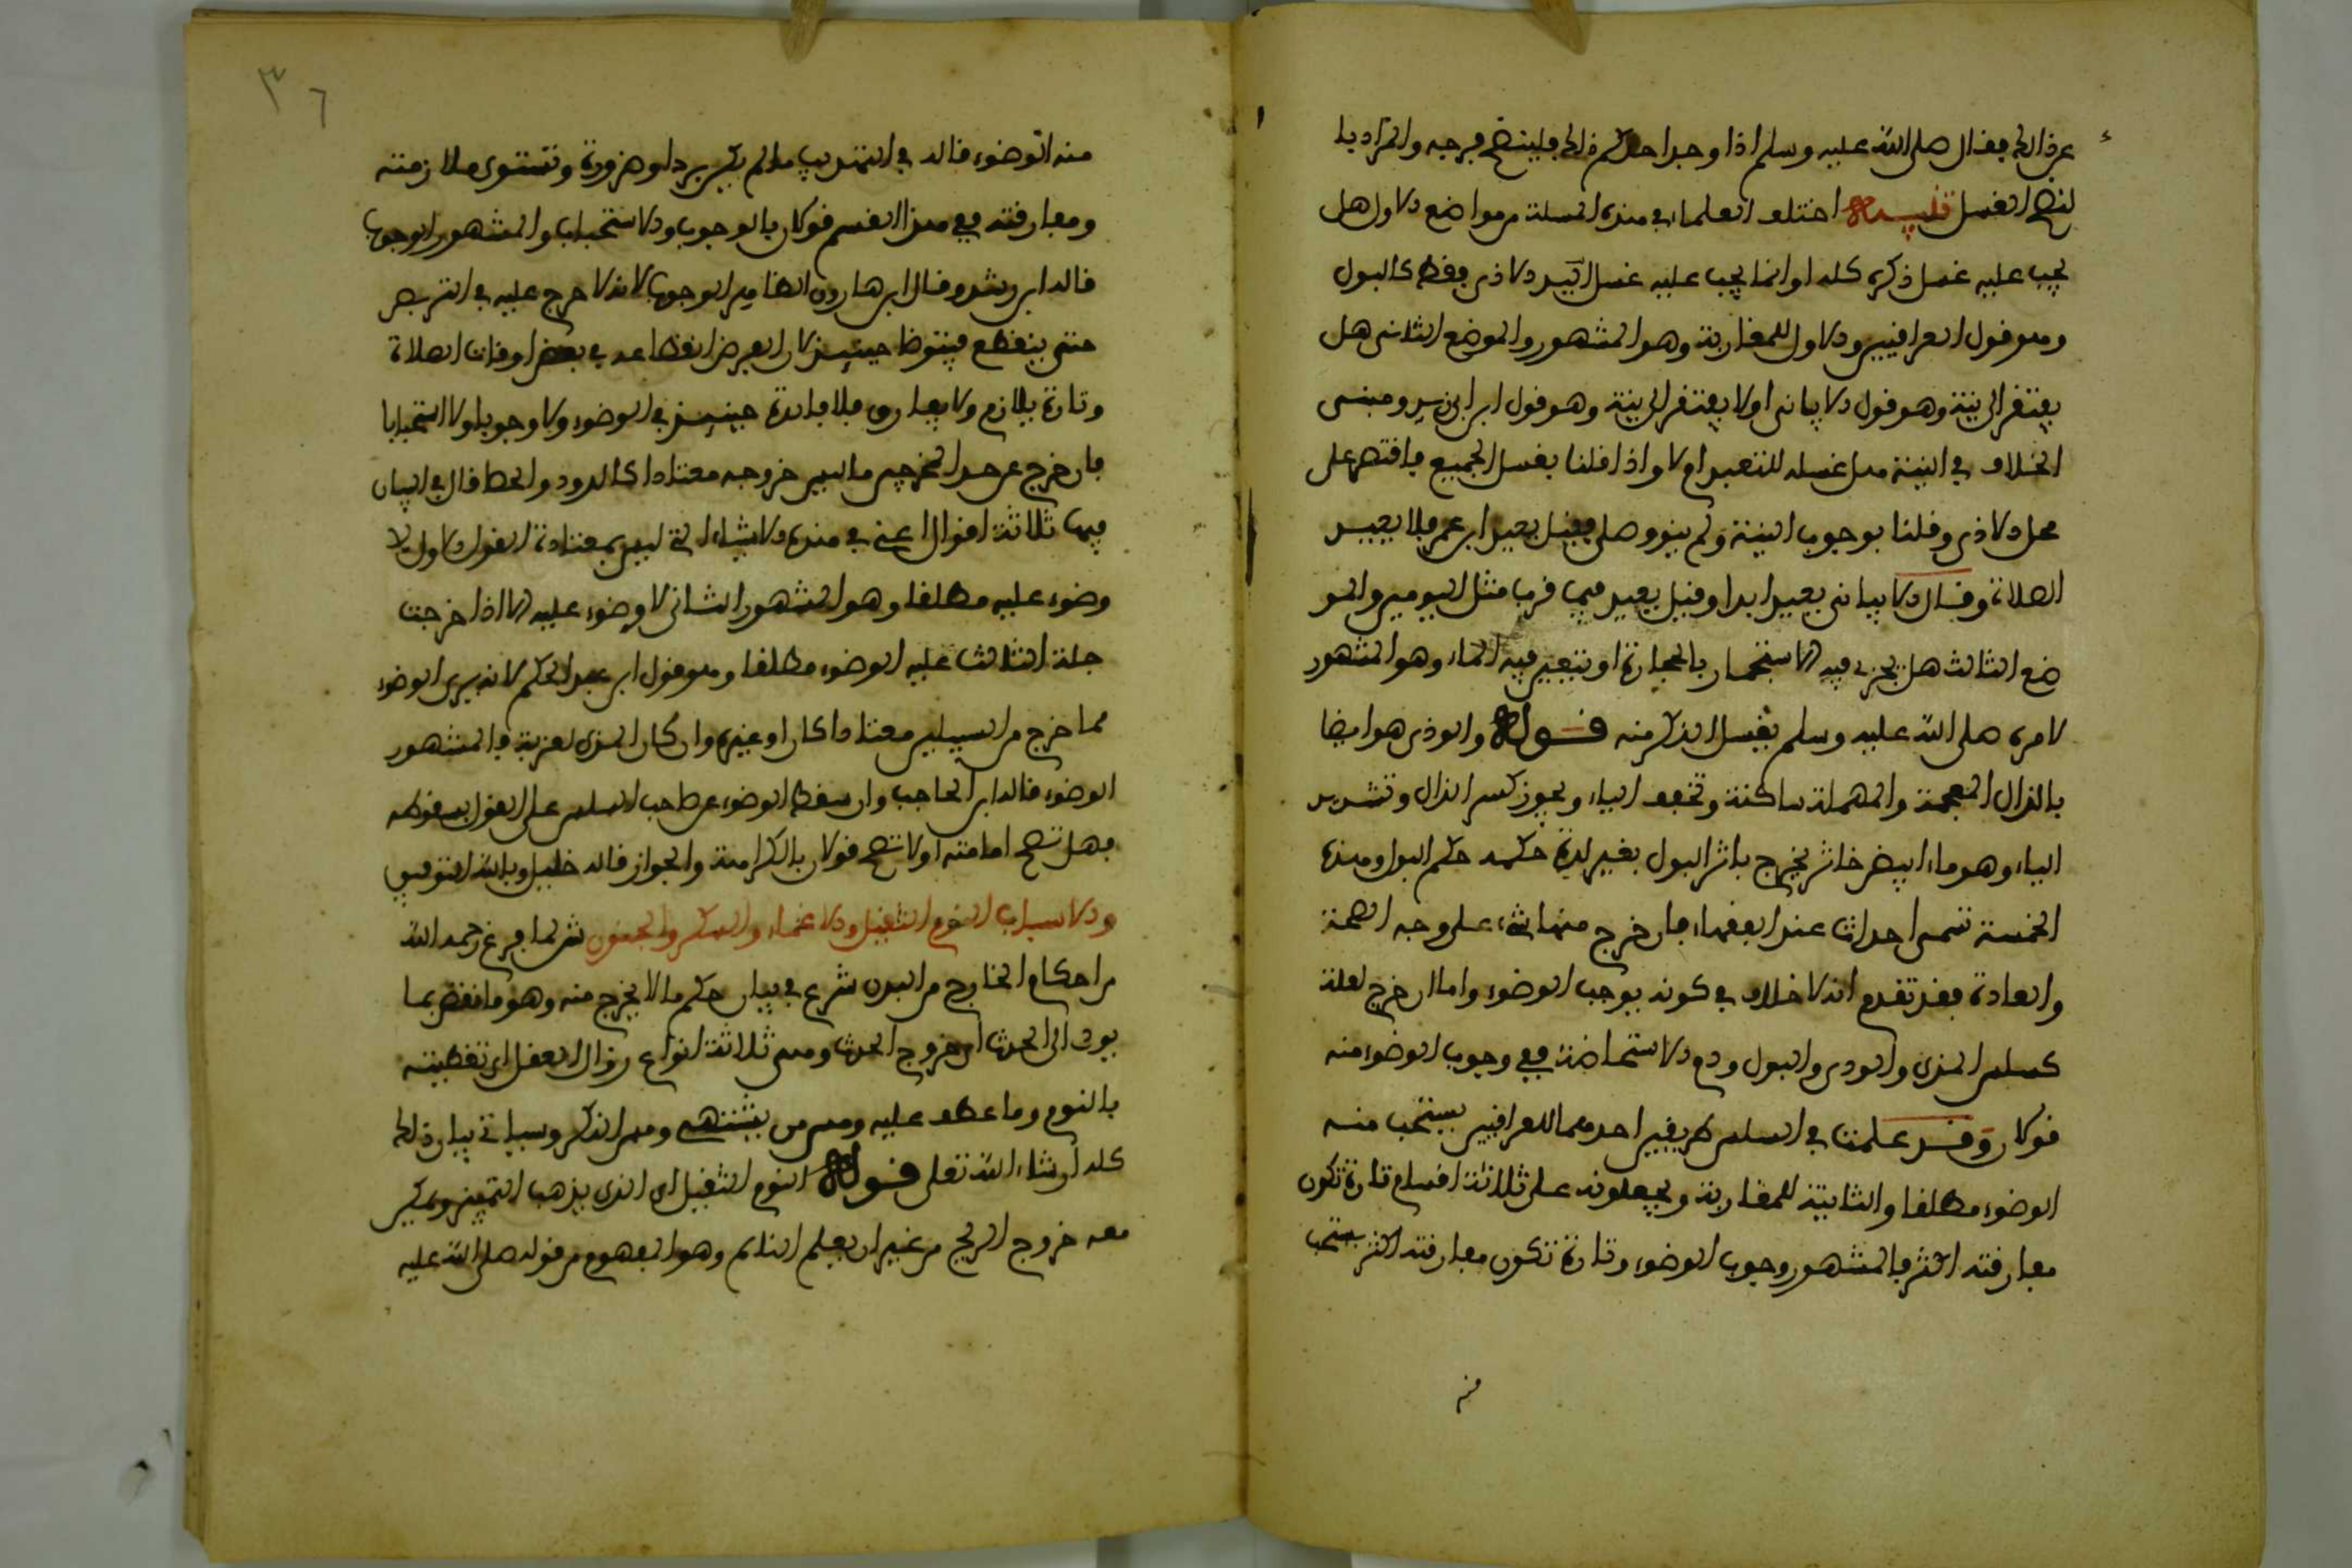 عن ذالك فقال صلى الله عليه وسلم اذا وجد احدكم ذالك فلينضح فرجه والمراد با
لنضح الغسل تنبيه اختلف العلماء في هذه المسلة من مواضع الاول هل
يجب عليه غسل ذكره كله او انما يجب عليه غسل الاذى فقط كالبول
وهو قول العرافيين والاول للمغاربة وهو المشهور والموضع الثاني هل
يفتقر الى نية وهو قول الابياني او لا يفتقر الى نية وهو قول ابن ابي زيد ومبنى
الخلاف في النية هل غسله للتعبد ام لا واذا قلنا بغسل الجميع فاقتصر على
محل الاذى وقلنا بوجوب النية ولم ينو وصلى فقيل يعيد ابن عمر فلا يعيد
الصلاة وقال الابياني يعيد ابدا وقيل يعيد فيما قرب مثل اليومين والمو
ضع الثالث هل يجزى فيه الاستجمار بالحجارة او يتعين فيه الماء وهو المشهور
لامره صلى الله عليه وسلم بغسل الذكر منه قوله والوذى هو ايضا
بالذال المعجمة والمهملة ساكنة وتخفف الياء ويجوز كسر الذال وتشديد
الياء وهو ماء ابيض خاثر يخرج باثر البول بغير لذة حكمه حكم البول وهذه
الخمسة تسمى احداث عند الفقهاء فان خرج منها شيء على وجه الصحة
والعادة فقد تقدم انه لا خلاف في كونه يوجب الوضوء واما ان خرج لعلة
كسلس المذي والودي والبول ودم الاستحاضة ففي وجوب الوضوء منه
قولان وقد علمت في السلس طريقين احدهما للعرافيين يستحب منه
الوضوء مطلقا والثانية للمغاربة ويجعلونه على ثلاثة اقسام تارة تكون
مفارقته اكثر فالمشهور وجوب الوضوء وتارة تكون مفارقته اكثر يستحب
منه
٣٦
منه الوضوء قاله في التهذيب ما لم يكن برد او ضرورة وتستوى ملازمته
ومفارقته ففي هذا القسم قولان بالوجوب والاستحباب والمشهور الوجوب
قاله ابن رشد وقال ابن هارون الظاهر الوجوب لانه لا حرج عليه في التربص
حتى ينقطع فيتوظا حينيذ لان الغرض انقطاعه في بعض اوقات الصلاة
وتارة يلازم ولا يفارق فلا فايدة حينيذ في الوضوء ولا وجوبا ولا استحبابا
فان خرج عن احد المخرجين ما ليس خروجه معتادا كالدود والحصا قال في البيان
فيها ثلاثة اقوال اعني في هذه الاشياء التي ليس بمعتادة القول الاول لا
وضوء عليه مطلقا وهو المشهور الثاني لا وضوء عليه الا اذا خرجت
جلة الثالث عليه الوضوء مطلقا وهو قول ابن عبد الحكم لانه يرى الوضوء
مما خرج من السبيلين معتادا كان او غيره وان كان المذي لعزبة فالمشهور
الوضوء قاله ابن الحاجب وان سقط الوضوء عن صاحب السلس على القول بسقوطه
فهل تصح امامته او لا تصح قولان بالكراهة والجواز قاله خليل وبالله التوفيق
والاسباب النوم الثقيل والاغماء والسكر والجنون ثم لما فرغ رحمه الله
من احكام الخارج من البدن شرع في بيان حكم ما لا يخرج منه وهو ما نقض بما
يودى الى الحدث او خروج الحدث وهى ثلاثة انواع زوال العقل او تغطيته
بالنوم وما عطف عليه ومس من يشتهى ومس الذكر وسياتي بيان ذالك
كله ان شاء الله تعلى قوله النوم الثقيل اى الذى يذهب التمييز ويمكن
معه خروج الريح من غير ان يعلم النايم وهو المفهوم من قوله صلى الله عليه